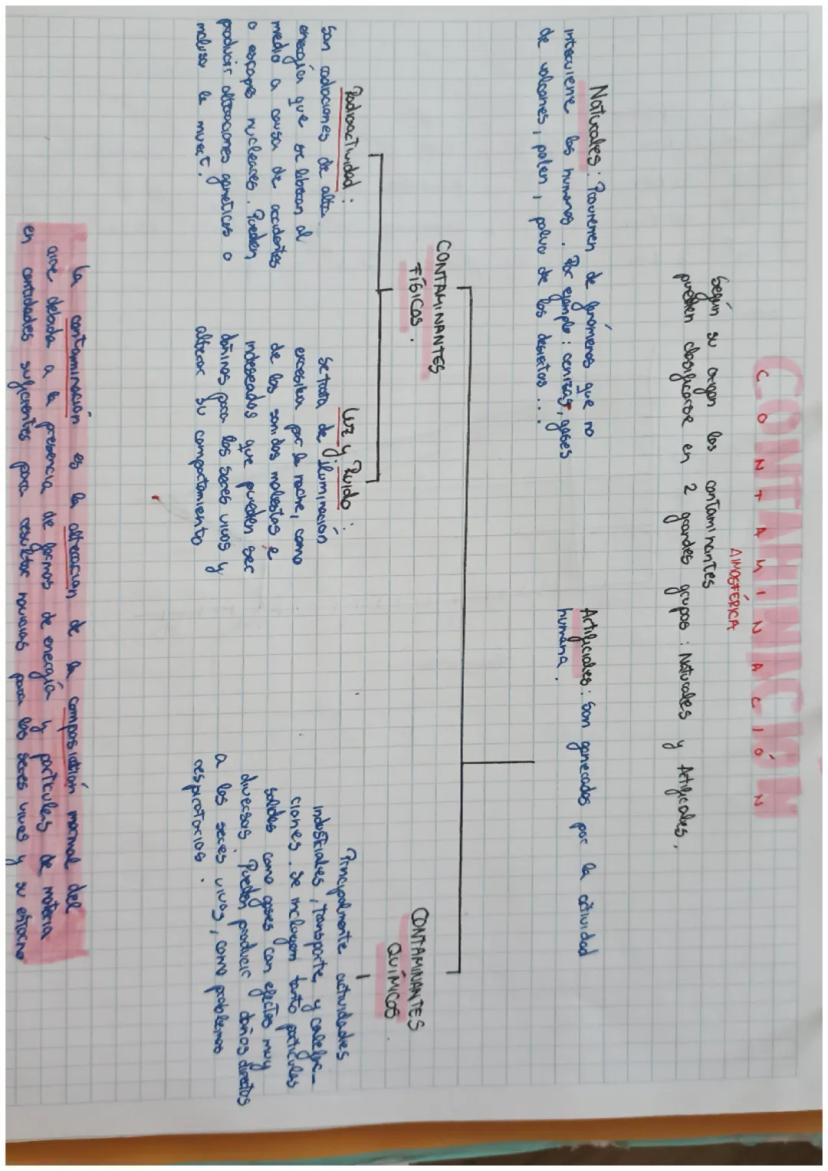 CONTAMINACIÓN
CONTAMINACIÓN
ATMOSFÉRICA
Según su origen los contaminantes
pueden clasificarse en 2 grandes grupos: Naturales y Artificiales.
Naturales: Provienen de fenómenos que no
interviene los humanos. Por ejemplo: cenizas, gases
de volcanes, polen, polvo de los desiertos...
Artificiales: Son generados por la actividad
humana.
CONTAMINANTES
FÍSICOS.
Radioactividad:
Son radiaciones de alta
energía que se liberan al
medio a causa de accidentes
o escapes nucleares. Pueden
producir alteraciones genéticas o
incluso la muert.
Luz y Ruido:
Se trata de iluminación
excesiba por la noche, como
de los sonidos molestos e
indeseados que pueden ser
dañinos para los seres vivos y
alterar su comportamiento
CONTAMINANTES
QUÍMICOS
Principalmente actividades
industriales, transporte y calefac-
ciones. Se incluyen tanto partículas
sólidas como gases con efectos muy
diversos. Pueden producir daños directos
a los seres vivos, como problemas
respiratorios.
La contaminación es la alteración de la composición normal del
aire debida a la presencia de formas de energía y partículas de materia
en cantidades suficientes para resultar nocivas para los seres vivos y su entorno